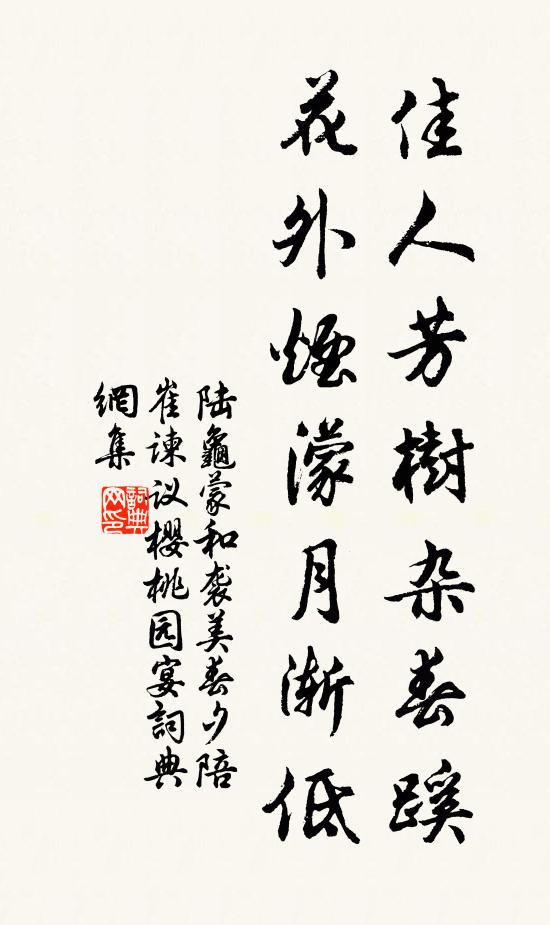 佳人芳樹杂春蹊
花外煙濛月渐低
陆龜蒙和袭美春夕陪
崔諫议櫻桃园宴詞典
網集
詞典
网印